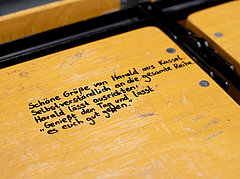 Schöne Grüße von Harald aus Kassel.
Selbstverständlich an die gesamte Reihe.
Harald lässt ausrichten:
„Genießt den Tag und lasst
es euch gut gehen."